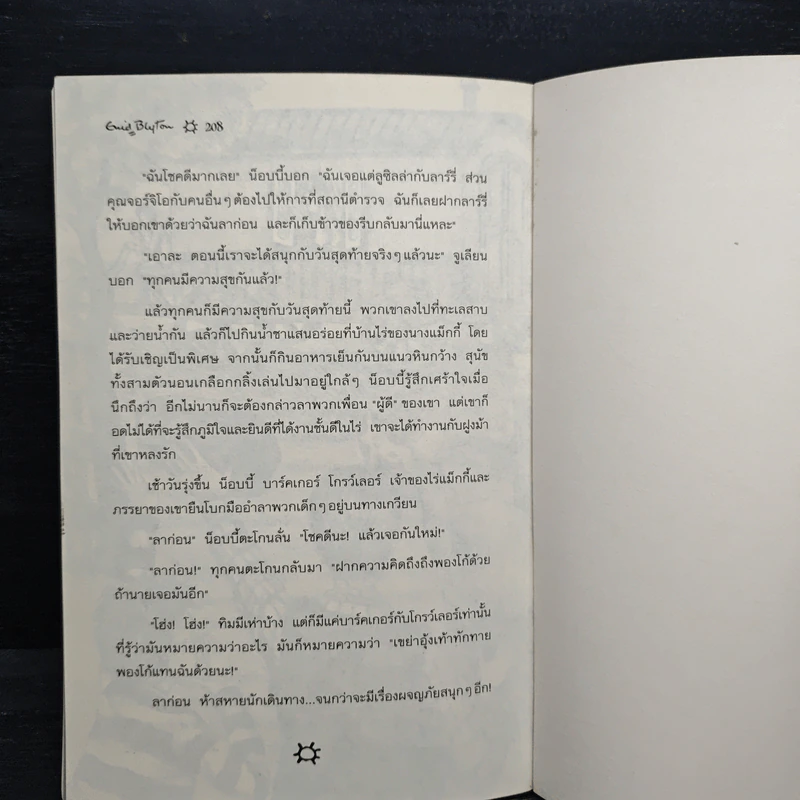 Enid Blyton 208
"ฉันโชคดีมากเลย" น็อบบี้บอก "ฉันเจอแต่ลูซิลล่ากับลาร์รี่ ส่วน
คุณจอร์จิโอกับคนอื่นๆ ต้องไปให้การที่สถานีตำรวจ ฉันก็เลยฝากลาร์รี่
ให้บอกเขาด้วยว่าฉันลาก่อน และก็เก็บข้าวของรีบกลับมานี่แหละ"
"เอาละ ตอนนี้เราจะได้สนุกกับวันสุดท้ายจริงๆ แล้วนะ" จูเลียน
บอก "ทุกคนมีความสุขกันแล้ว!"
แล้วทุกคนก็มีความสุขกับวันสุดท้ายนี้ พวกเขาลงไปที่ทะเลสาบ
และว่ายน้ำกัน แล้วก็ไปกินน้ำชาแสนอร่อยที่บ้านไร่ของนางแม็กกี้ โดย
ได้รับเชิญเป็นพิเศษ จากนั้นก็กินอาหารเย็นกันบนแนวหินกว้าง สุนัข
ทั้งสามตัวนอนเกลือกกลิ้งเล่นไปมาอยู่ใกล้ๆ น็อบบี้รู้สึกเศร้าใจเมื่อ
นึกถึงว่า อีกไม่นานก็จะต้องกล่าวลาพวกเพื่อน "ผู้ดี" ของเขา แต่เขาก็
อดไม่ได้ที่จะรู้สึกภูมิใจและยินดีที่ได้งานชั้นดีในไร่ เขาจะได้ทำงานกับฝูงม้า
ที่เขาหลงรัก
เช้าวันรุ่งขึ้น น็อบบี้ บาร์คเกอร์ โกรว์เลอร์ เจ้าของไร่แม็กกี้และ
ภรรยาของเขายืนโบกมืออำลาพวกเด็กๆ อยู่บนทางเกวียน
"ลาก่อน" น็อบบี้ตะโกนลั่น "โชคดีนะ! แล้วเจอกันใหม่!"
"ลาก่อน!" ทุกคนตะโกนกลับมา "ฝากความคิดถึงถึงพองโก้ด้วย
ถ้านายเจอมันอีก"
"โฮ่ง! โฮ่ง!" ทิมมีเห่าบ้าง แต่ก็มีแค่บาร์คเกอร์กับโกรว์เลอร์เท่านั้น
ที่รู้ว่ามันหมายความว่าอะไร มันก็หมายความว่า "เขย่าอุ้งเท้าทักทาย
พองโก้แทนฉันด้วยนะ!"
ลาก่อน ห้าสหายนักเดินทาง...จนกว่าจะมีเรื่องผจญภัยสนุกๆ อีก!